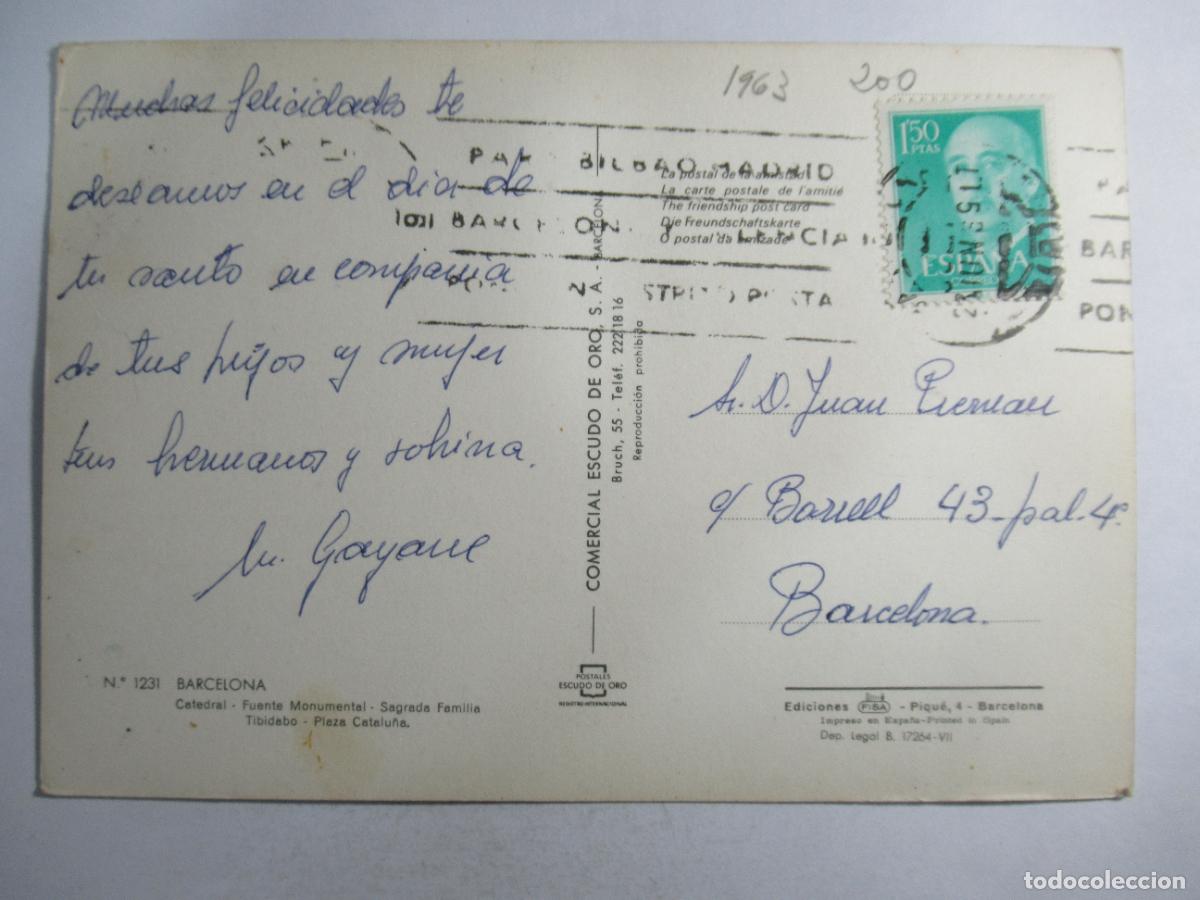 1963 200
Muchas felicidades te
deseamos en el dia de
tu santo en compania
de tus hijos y mujer
tus hermanos y sobina.
Gayarre
BILBAO MADRID
BAR
PON
1'50
PTAS
ESPAÑA
La postal de la amistad
La carte postale de l'amitié
The friendship post card
Die Freundschaftskarte
O postal da amizade
COMERCIAL ESCUDO DE ORO, S. A. - BARCELONA
Bruch, 55 - Teléf. 222 18 16
Reproducción prohibida
Sr. D. Juan
c/ Borrell 43-pal-4º
Barcelona.
N.º 1231 BARCELONA
Catedral - Fuente Monumental - Sagrada Familia
Tibidabo - Plaza Cataluña.
POSTALES
ESCUDO DE ORO
REGISTRO INTERNACIONAL
Ediciones FISA - Piqué, 4 - Barcelona
Impreso en España-Printed in Spain
Dep. Legal B. 17264-VII
todocoleccion